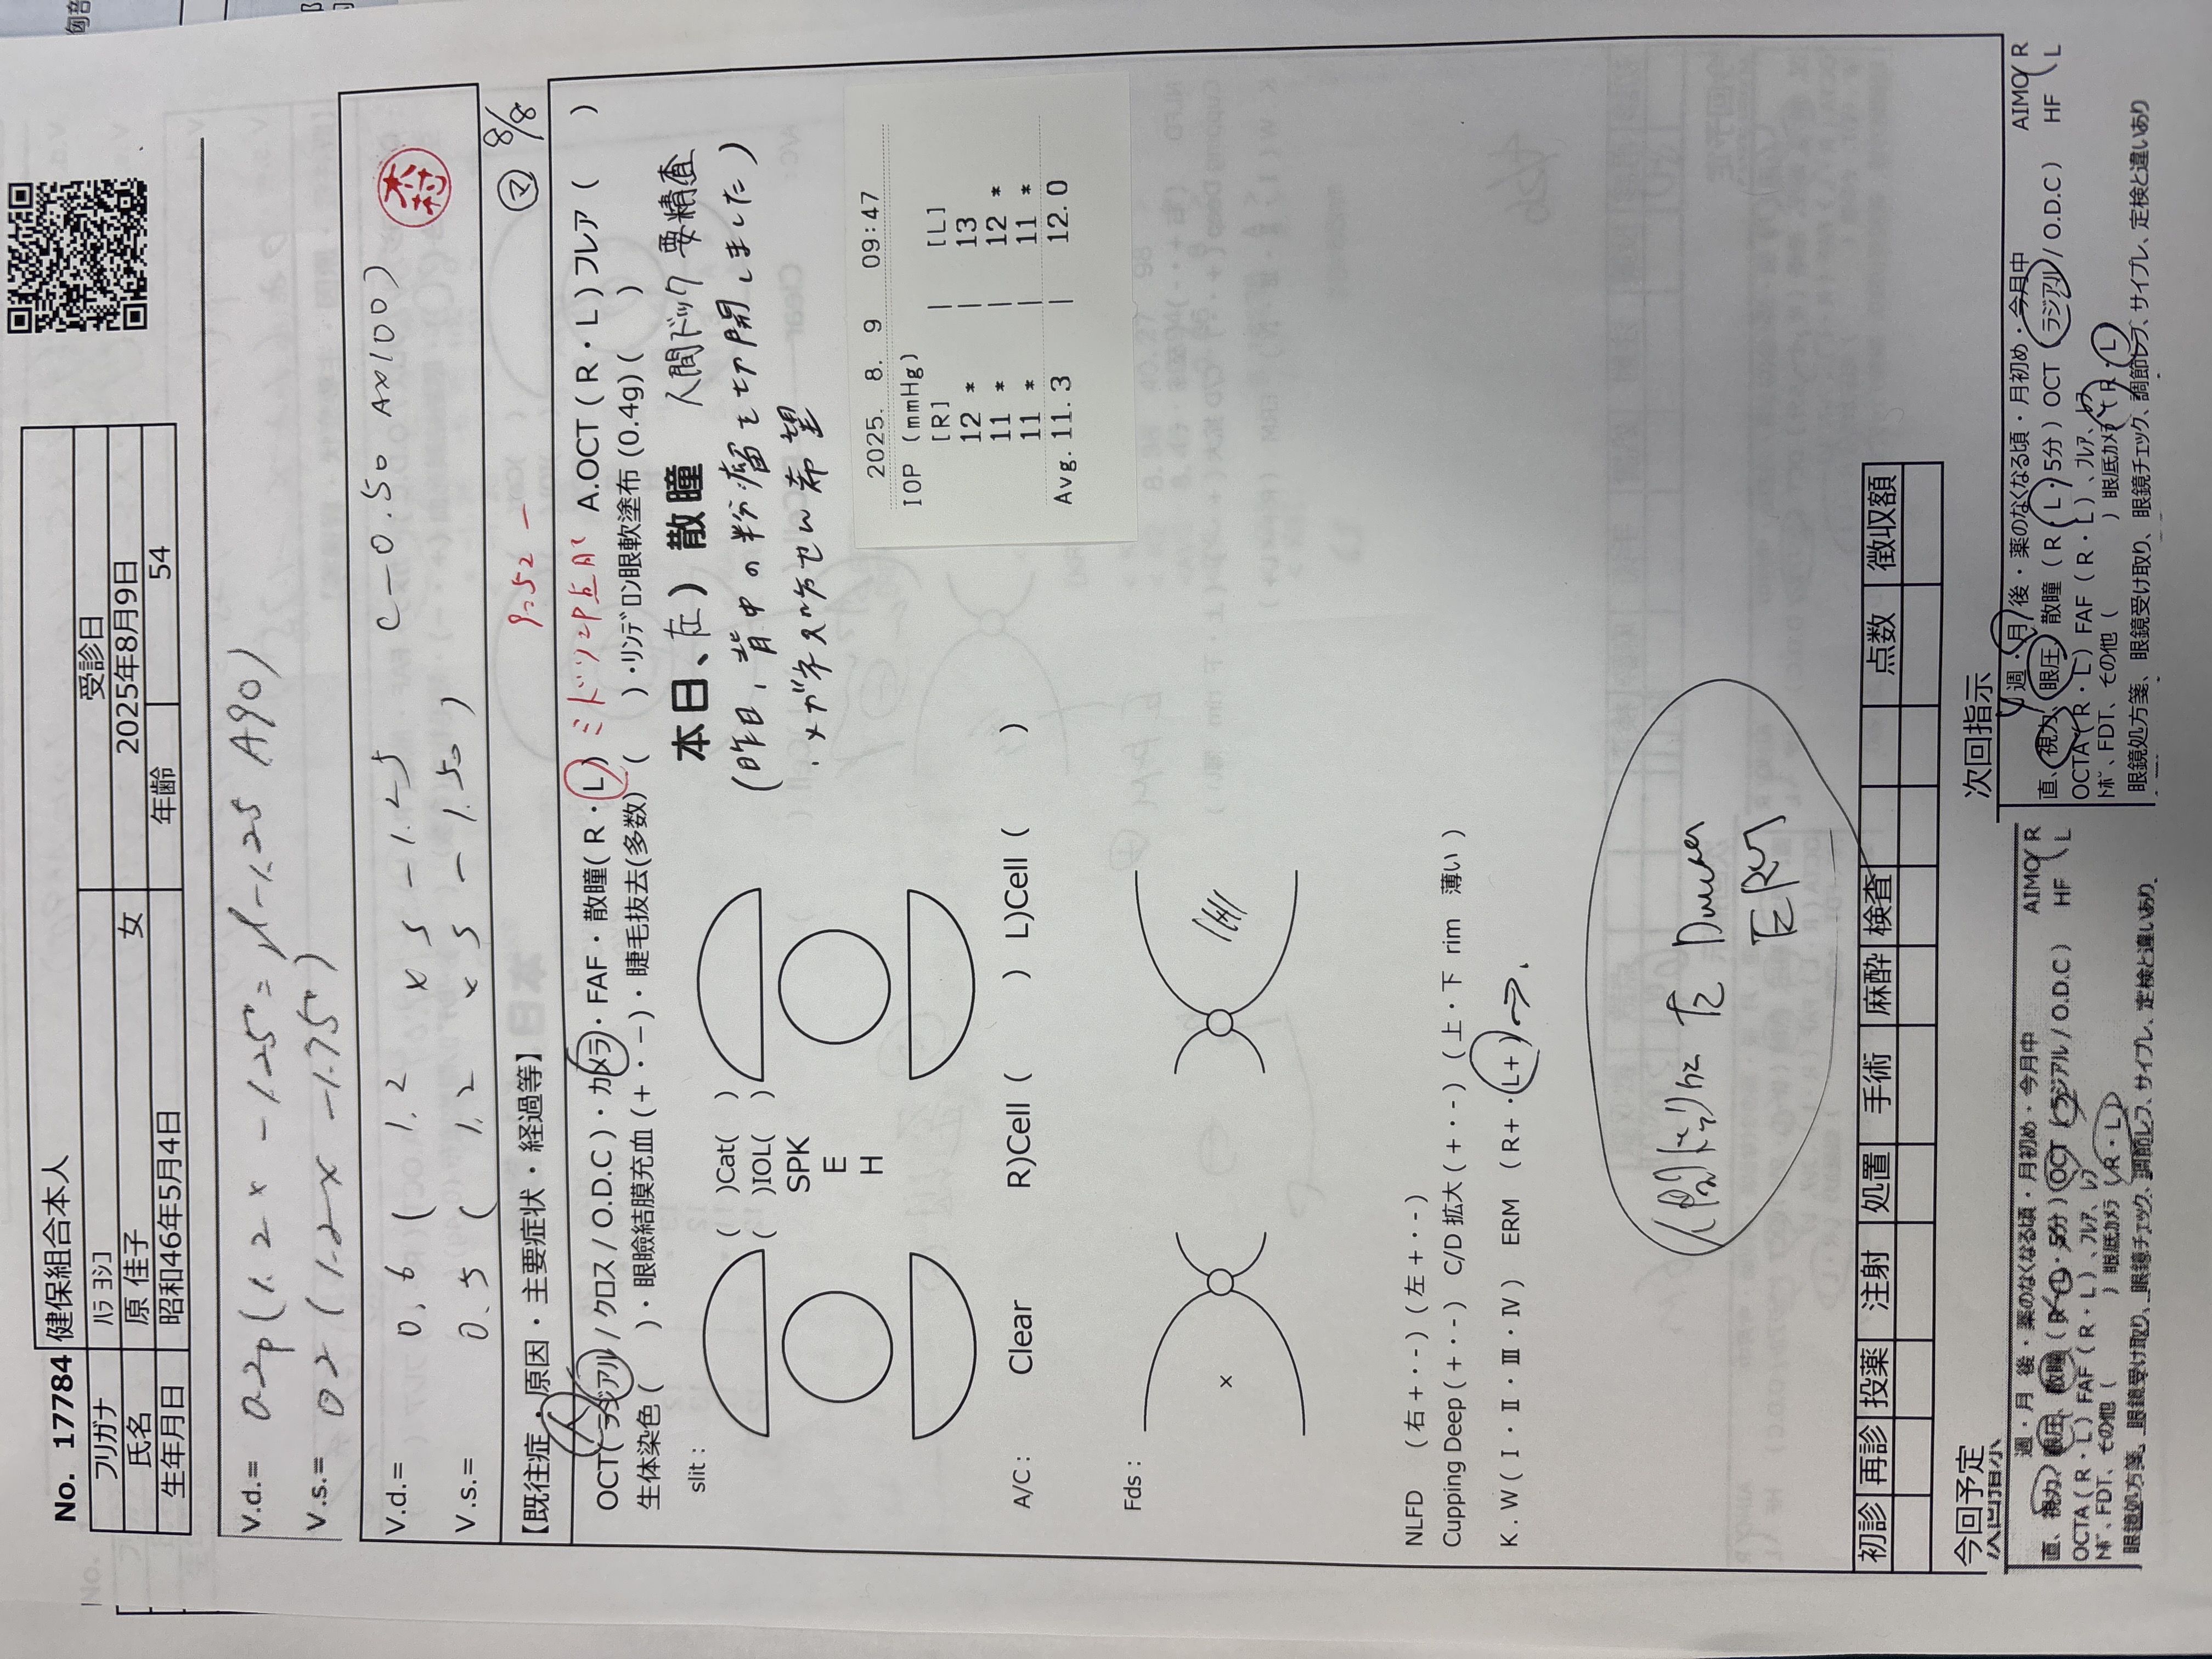 No. 17784 健保組合本人
フリガナ ﾊﾗ ﾖｼｺ 受診日
氏名 原 佳子 女 2025年8月9日
生年月日 昭和46年5月4日 年齢 54
V.d.= 0.2p(1.2× -1.25 -1.25 A90)
V.s.= 02 (1.2× -1.75)
V.d.= 0.6 ( 1.2 ×S -1.25 C-0.50 A×100)
V.s.= 0.5 ( 1.2 ×S -1.50 )
木村
【既往症・原因・主要症状・経過等】 9=52 - マ 8/8
OCT( ラジアル / クロス / O.D.C )・カメラ・FAF・散瞳( R・L ) ミドリンP点眼 A.OCT ( R・L ) フレア ( )
生体染色 ( )・眼瞼結膜充血 (+・−)・睫毛抜去(多数) ( )・ﾘﾝﾃﾞﾛﾝ眼軟塗布 (0.4g) ( )
slit :
( )Cat( )
( )IOL( )
SPK
E
H
本日、左) 散瞳 人間ドック 要精査
(昨日, 背中の粉瘤を切開しました)
・メガネ処方せん希望
2025. 8. 9 09:47
IOP (mmHg)
[R] | [L]
12 * | 13
11 * | 12 *
11 * | 11 *
Avg. 11.3 | 12.0
A/C : Clear R)Cell ( ) L)Cell ( )
Fds :
×
NLFD (右 +・-) (左 +・-)
Cupping Deep ( +・- ) C/D 拡大 ( +・- ) ( 上・下 rim 薄い )
K . W ( Ⅰ・Ⅱ・Ⅲ・Ⅳ ) ERM ( R+・L+ ) →.
人間ドックに 左
ERM
初診 再診 投薬 注射 処置 手術 麻酔 検査 点数 徴収額
今回予定
次回指示
週・月 後・薬のなくなる頃・月初め・今月中 AIMO R
直、視力、眼圧、散瞳 ( R・L・5分 ) OCT ( ラジアル / O.D.C ) HF L
OCTA ( R・L ) FAF ( R・L ) 、ﾌﾚｱ、ﾚﾌ
ﾄﾎﾟ、FDT、その他 ( ) 眼底カメラ ( R・L )
眼鏡処方箋、眼鏡受け取り、眼鏡チェック、調節レフ、サイプレ、定検と違いあり
次回指示
週・月 後・薬のなくなる頃・月初め・今月中 AIMO R
直、視力、眼圧、散瞳 ( R・L・5分 ) OCT ラジアル / O.D.C ) HF L
OCTA ( R・L ) FAF ( R・L ) 、ﾌﾚｱ、ﾚﾌ
ﾄﾎﾟ、FDT、その他 ( ) 眼底カメラ ( R・L )
眼鏡処方箋、眼鏡受け取り、眼鏡チェック、調節レフ、サイプレ、定検と違いあり